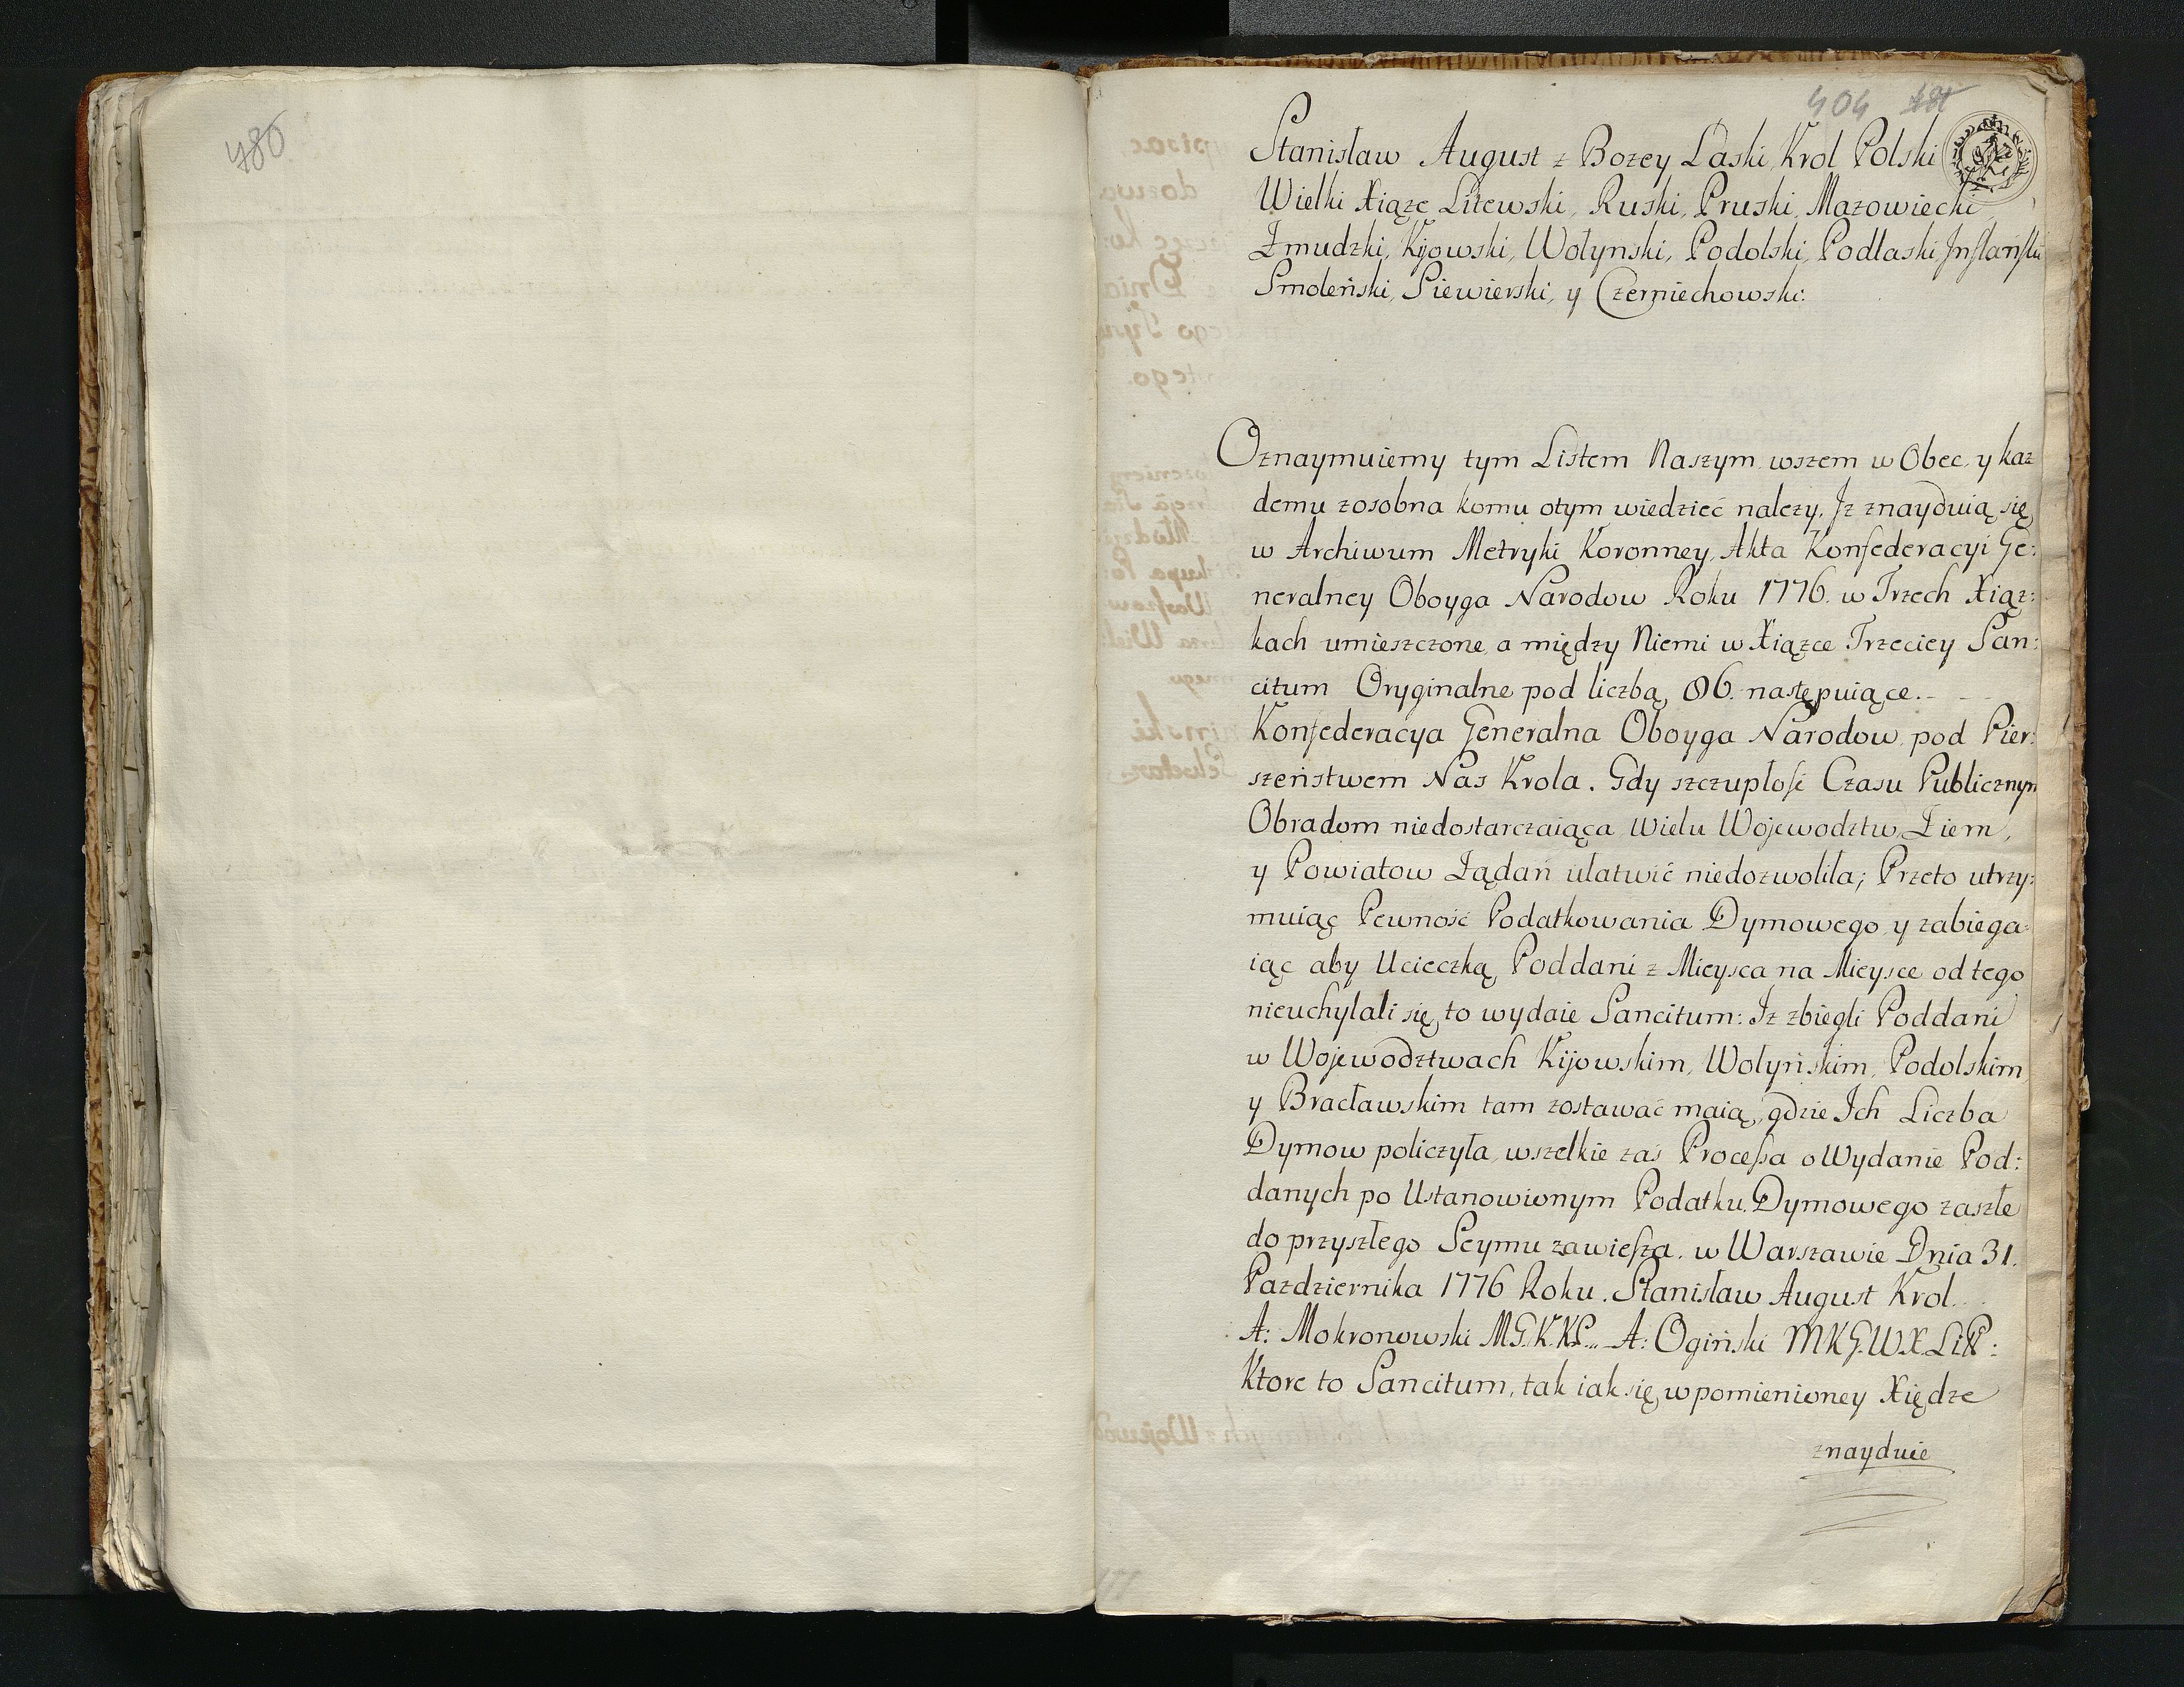 480
404 481
Stanisław August z Bozey Łaski, Krol Polski
Wielki Xiąże Litewski, Ruski, Pruski, Mazowiecki
Żmudzki, Kijowski, Wołynski, Podolski, Podlaski Jnflantski
Smoleński, Siewierski, y Czerniechowski:
Oznaymuiemy tym Listem Naszym wszem w Obec, y kaz
demu zosobna komu otym wiedzieć nalezy, Jz znayduią się
w Archiwum Metryki Koronney, Akta Konfederacyi Ge:
neralney Oboyga Narodow Roku 1776. w Trzech Xiąz:
kach umieszczone, a między Niemi w Xiązce Trzeciey San:
citum Oryginalne pod liczbą 86. następuiące.
Konfederacya Generalna Oboyga Narodow, pod Pier:
szeństwem Nas Krola. Gdy szczupłość Czasu Publicznym
Obradom niedostarczaiąca, Wielu Wojewodztw, Ziem,
y Powiatow Żądań ułatwić niedozwoliła; Przeto utrzy:
muiąc Pewność Podatkowania Dymowego, y zabiega:
iąc aby Ucieczką Poddani z Mieysca na Mieysce od tego
nieuchylali się, to wydaie Sancitum: Jz zbiegli Poddani
w Wojewodztwach Kijowskim, Wołyńskim, Podolskim,
y Bracławskim tam zostawać maią, gdzie Ich Liczba
Dymow policzyła, wszelkie zaś Processa o Wydanie Pod:
danych po Ustanowionym Podatku Dymowego zaszłe
do przyszłego Seymu zawiesza. w Warszawie Dnia 31.
Pazdziernika 1776 Roku. Stanisław August Krol.
A: Mokronowski M.G.K.K.P. A: Ogiński MKG.W.X.Lit:
Ktore to Sancitum, tak iak się w pomienioney Xiędze
znayduie